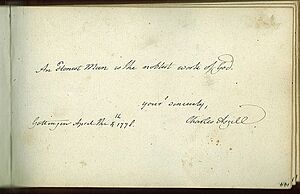 An Honest Man is the noblest work of God.
your's sincerely,
Gottingen April the 4th 1778.
Charles Asgill